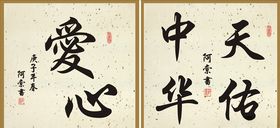 愛心
庚子年春
阿索書
天佑
中华
阿索書